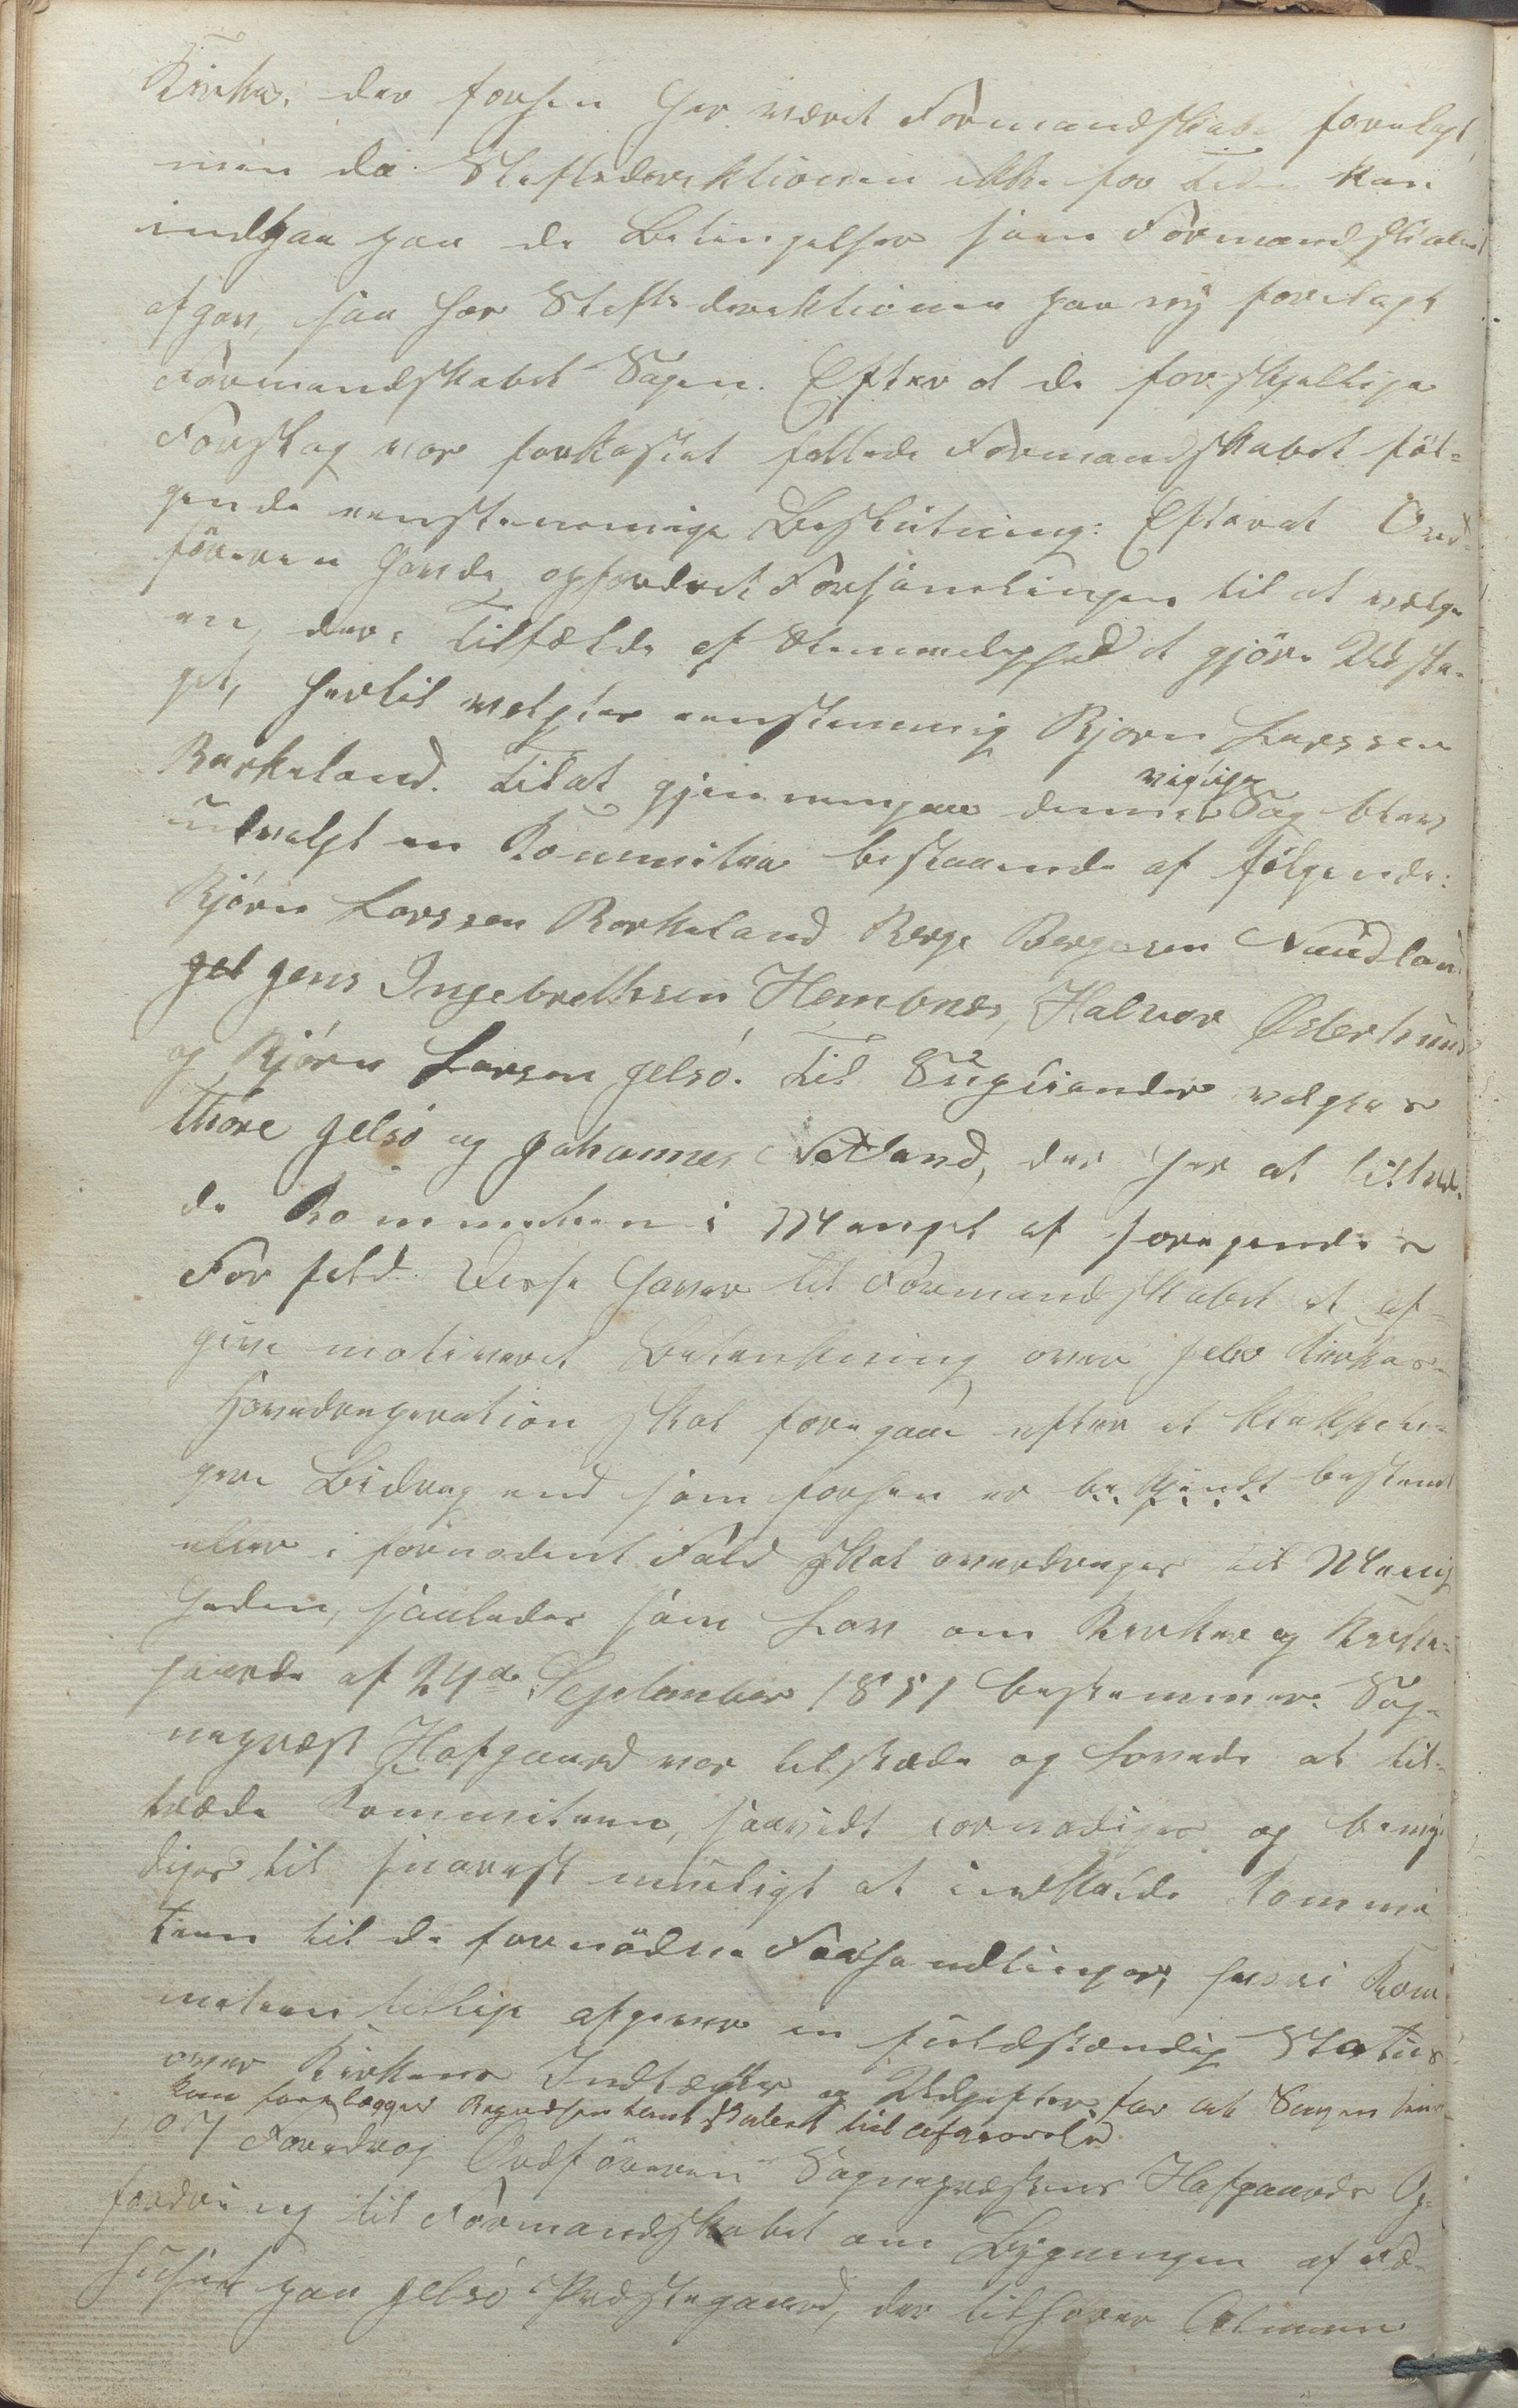 Kirke, der forhen har været Formandskabet forelagt,
men da Stiftsdirektionen ikke for Tiden kan
indgaa paa de Betingelser som Formandskabet
afgav, saa har Stiftsdirektionen paa ny forelagt
Formandskabet Sagen. Efter at de forskjellige
Forslag var forkastet fattede Formandskabet föl-
gende eenstemmige Beslutning: Efterat Ord-
föreren havde opfordret Forsamlingen til at vælge
en, der i Tilfælde af Stemmelighed at gjöre Udsla-
get, hertil valgtes eenstemmig Bjørn Larssen
Barkeland. Til at gjennemgaa denne vigtige Sag blev
udvalgt en Kommitee bestaaende af fölgende:
Björn Larssen Barkeland Berge Bergesen Nædland
Jens Ingebrethsen Hembnes, Halvor Østerhuus
og Björn Larsen Jelsö. Til Suplianter valgtes
Thore Jelsö og Johannes Netland, der har at tiltræ-
de Kommiteen i Mangel af foregaaende
Forfald. Disse haver til Formandskabet at af-
give motiveret Betænkning over Jelsö Kirkes
Hovedreperation skal foregaae efter et
Bidrag end som forhen er bestemt
eller i fornödent Fald skal overdrages til Menig
heden, saaledes som Lov om Kirker og Kirke-
gaarde af 24de September 1851 bestemmer. Sog-
nepræst Hofgaard var tilstæde og lovede at til-
træde Kommiteen, saavidt fornødiges og bemyn
diges til snarest mueligt at indkalde Kommi
teen til de fornödne Forhandlinger, hvori Kom
miteen tillige afgiver en fuldstændig Status
over Kirkens Indtægter og Udgifter, for at Sagen
kan forelægges Repræsentantskabet til Afgjörelse
Foredrog Ordföreren Sognepræstens Hofgaards Op-
fordring til Formandskabet om Bygningen af
huset paa Jelsö Præstegaard, der tilhører Almuen